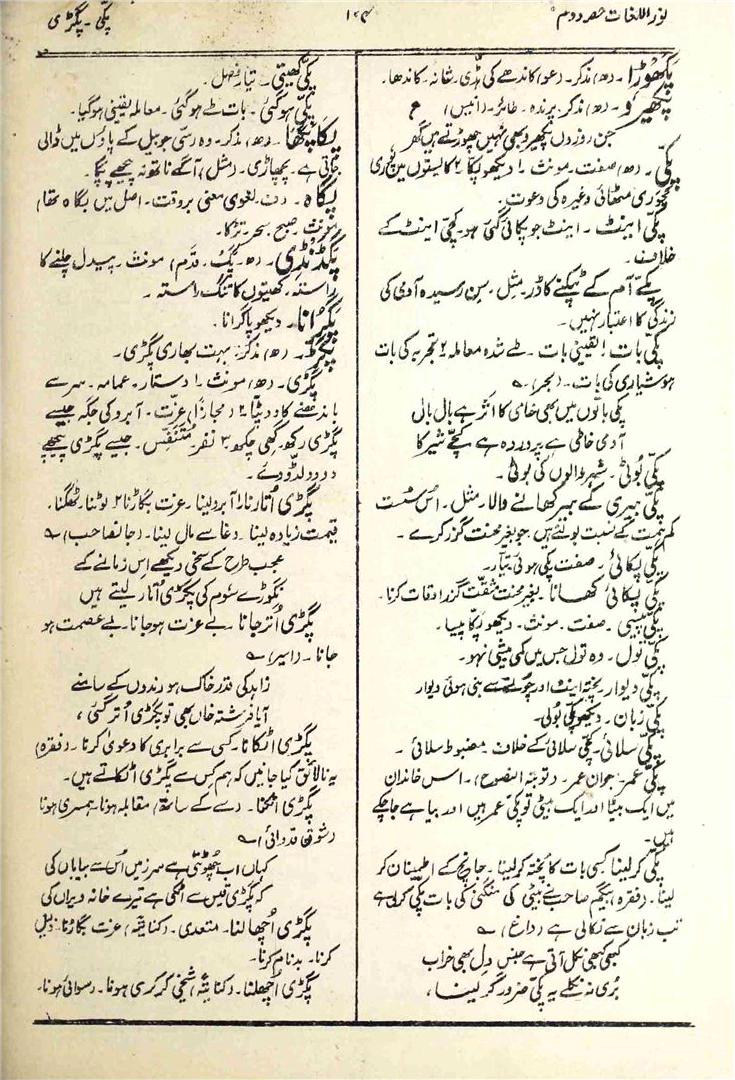 نور اللغات حصہ دوم
۱۲۴
پکّی ۔ پگڑی
پکھوڑا ۔ (ھ) مذکر ۔ (عو) کاندھے کی ہڈّی ۔ شانہ ۔ کاندھا ۔
پکھیرو ۔ (ھ) مذکر ۔ پرندہ ۔ طائر ۔ (انیس) ع
جن روزوں پکھیرو بھی نہیں چھوڑتے ہیں گھر
پکّی ۔ (ھ) صفت ۔ مونث ۔ ۱ دیکھو پکّا ۲ کایستوں میں
کچوری مٹھائی وغیرہ کی دعوت ۔
پکّی اینٹ ۔ اینٹ جو پکائی گئی ہو ۔ کچّی اینٹ کے
خلاف ۔
پکّے آم کے ٹپکنے کا ڈر ۔ مثل ۔ سِن رسیدہ آدمی کی
زندگی کا اعتبار نہیں ۔
پکّی بات ۱ یقینی بات ۔ طے شدہ معاملہ ۲ تجربہ کی بات
ہوشیاری کی بات ۔ (بحر) ؎
پکی باتوں میں بھی خامی کا اثر ہے بال بال
آدمی خاطی ہے پروردہ ہے کچّے شیر کا
پکّی بولی ۔ شہر والوں کی بولی ۔
پکّی بیری کے بیر کھانے والا ۔ مثل ۔ اُس سُست
کم ہمت کے نسبت بولتے ہیں جو بغیر محنت گزر کرے ۔
پکّی پکائی ۔ صفت پکی ہوئی تیّار ۔
پکّی پکائی کھانا ۔ بغیر محنت مشقّت گزر اوقات کرنا ۔
پکّی پیسی ۔ صفت ۔ مونث ۔ دیکھو پکّا پیسا ۔
پکّی تول ۔ وہ تول جس میں کمی بیشی نہو ۔
پکّی دیوار پختہ اینٹ اور چونے سے بنی ہوئی دیوار
پکّی زبان ۔ دیکھو پکّی بولی ۔
پکّی سلائی ۔ کچّی سلائی کے خلاف ۔ مضبوط سلائی ۔
پکّی عمر ۔ جوان عمر ۔ (توبتہ النصوح) ۔ اس خاندان
میں ایک بیٹا اور ایک بیٹی تو پکّی عمر ہیں اور بیاہے جا چکے
ہیں ۔
پکّی کر لینا کسی بات کا پختہ کر لینا ۔ جانچ کے اطمینان کر
لینا ۔ (فقرہ) بیگم صاحب نے بیٹی کی منگنی کی بات پکّی کر لی ہے
تب زبان سے نکالی ہے (داغ) ؎
کبھی کبھی نکل آتی ہے جنس دل بھی خراب
بُری نہ نکلے یہ پکّی ضرور کر لینا ،
پکّی کھیتی ۔ تیار فصل ۔
پکّی ہو گئی ۔ بات طے ہو گئی ۔ معاملہ یقینی ہو گیا ۔
پگاپچھا ۔ (ھ) مذکر ۔ وہ رسّی جو بیل کے پاؤں میں ڈالی
جاتی ہے ۔ پچھاڑی ۔ (مثل) آگے ناتھ نہ پیچھے پگا ۔
پگاہ ۔ (ف ۔ لغوی معنی بروقت ۔ اصل میں بگاہ تھا)
مونث ۔ صبح ۔ سحر ۔ تڑکا ۔
پگڈنڈی ۔ (ھ ۔ پگ ۔ قدم) مونث ۔ پیدل چلنے کا
راستہ ۔ کھیتوں کا تنگ راستہ ۔
پگرانا ۔ دیکھو پاگرانا ۔
پگڑ ۔ (ھ) مذکر ۔ بہت بھاری پگڑی ۔
پگڑی ۔ (ھ) مونث ۱ دستار ۔ عمامہ ۔ سر سے
باندھنے کا دوپٹا ۲ (مجازاً) عزّت ۔ آبرو کی جگہ جیسے
پگڑی رکھ ۔ گھی چکھ ۳ نفر ۔ مُتنفّس ۔ جیسے پگڑی پیچھے
دو دو لڈّو دے ۔
پگڑی اُتارنا ۱ آبرو لینا ۔ عزت بگاڑنا ۲ لوٹنا ۔ ٹھگنا ۔
قیمت زیادہ لینا ۔ دغا سے مال لینا ۔ (جانصاحب) ؎
عجب طرح کے سخی دیکھے اِس زمانے کے
نگوڑے سُوم کی پگڑی اُتار لیتے ہیں
پگڑی اُتر جانا ۔ بے عزت ہو جانا ۔ بے عصمت ہو
جانا ۔ (اسیر) ؎
زاہد کی قدر خاک ہو رندوں کے سامنے
آیا فرشتہ خاں بھی تو پگڑی اُتر گئی ،
پگڑی اٹکانا ۔ کسی سے برابری کا دعویٰ کرنا ۔ (فقرہ)
یہ نالائق گیا جانیں کہ ہم کس سے پگڑی اٹکاتے ہیں ۔
پگڑی اٹکنا ۔ (سے کے ساتھ) مقابلہ ہونا ۔ ہمسری ہونا
(شوق قدوائی) ؎
کہاں اب چھوٹتی ہے سر زمیں اُس سے بیاباں کی
کہ پگڑی قیس سے اٹکی ہے تیرے خانہ ویراں کی
پگڑی اُچھالنا ۔ متعدی ۔ (کنایتہً) عزت بگاڑنا ۔ ذلیل
کرنا ۔ بدنام کرنا ۔
پگڑی اُچھلنا ۔ (کنایتہً) شیخی کرکری ہونا ۔ رسوائی ہونا ۔